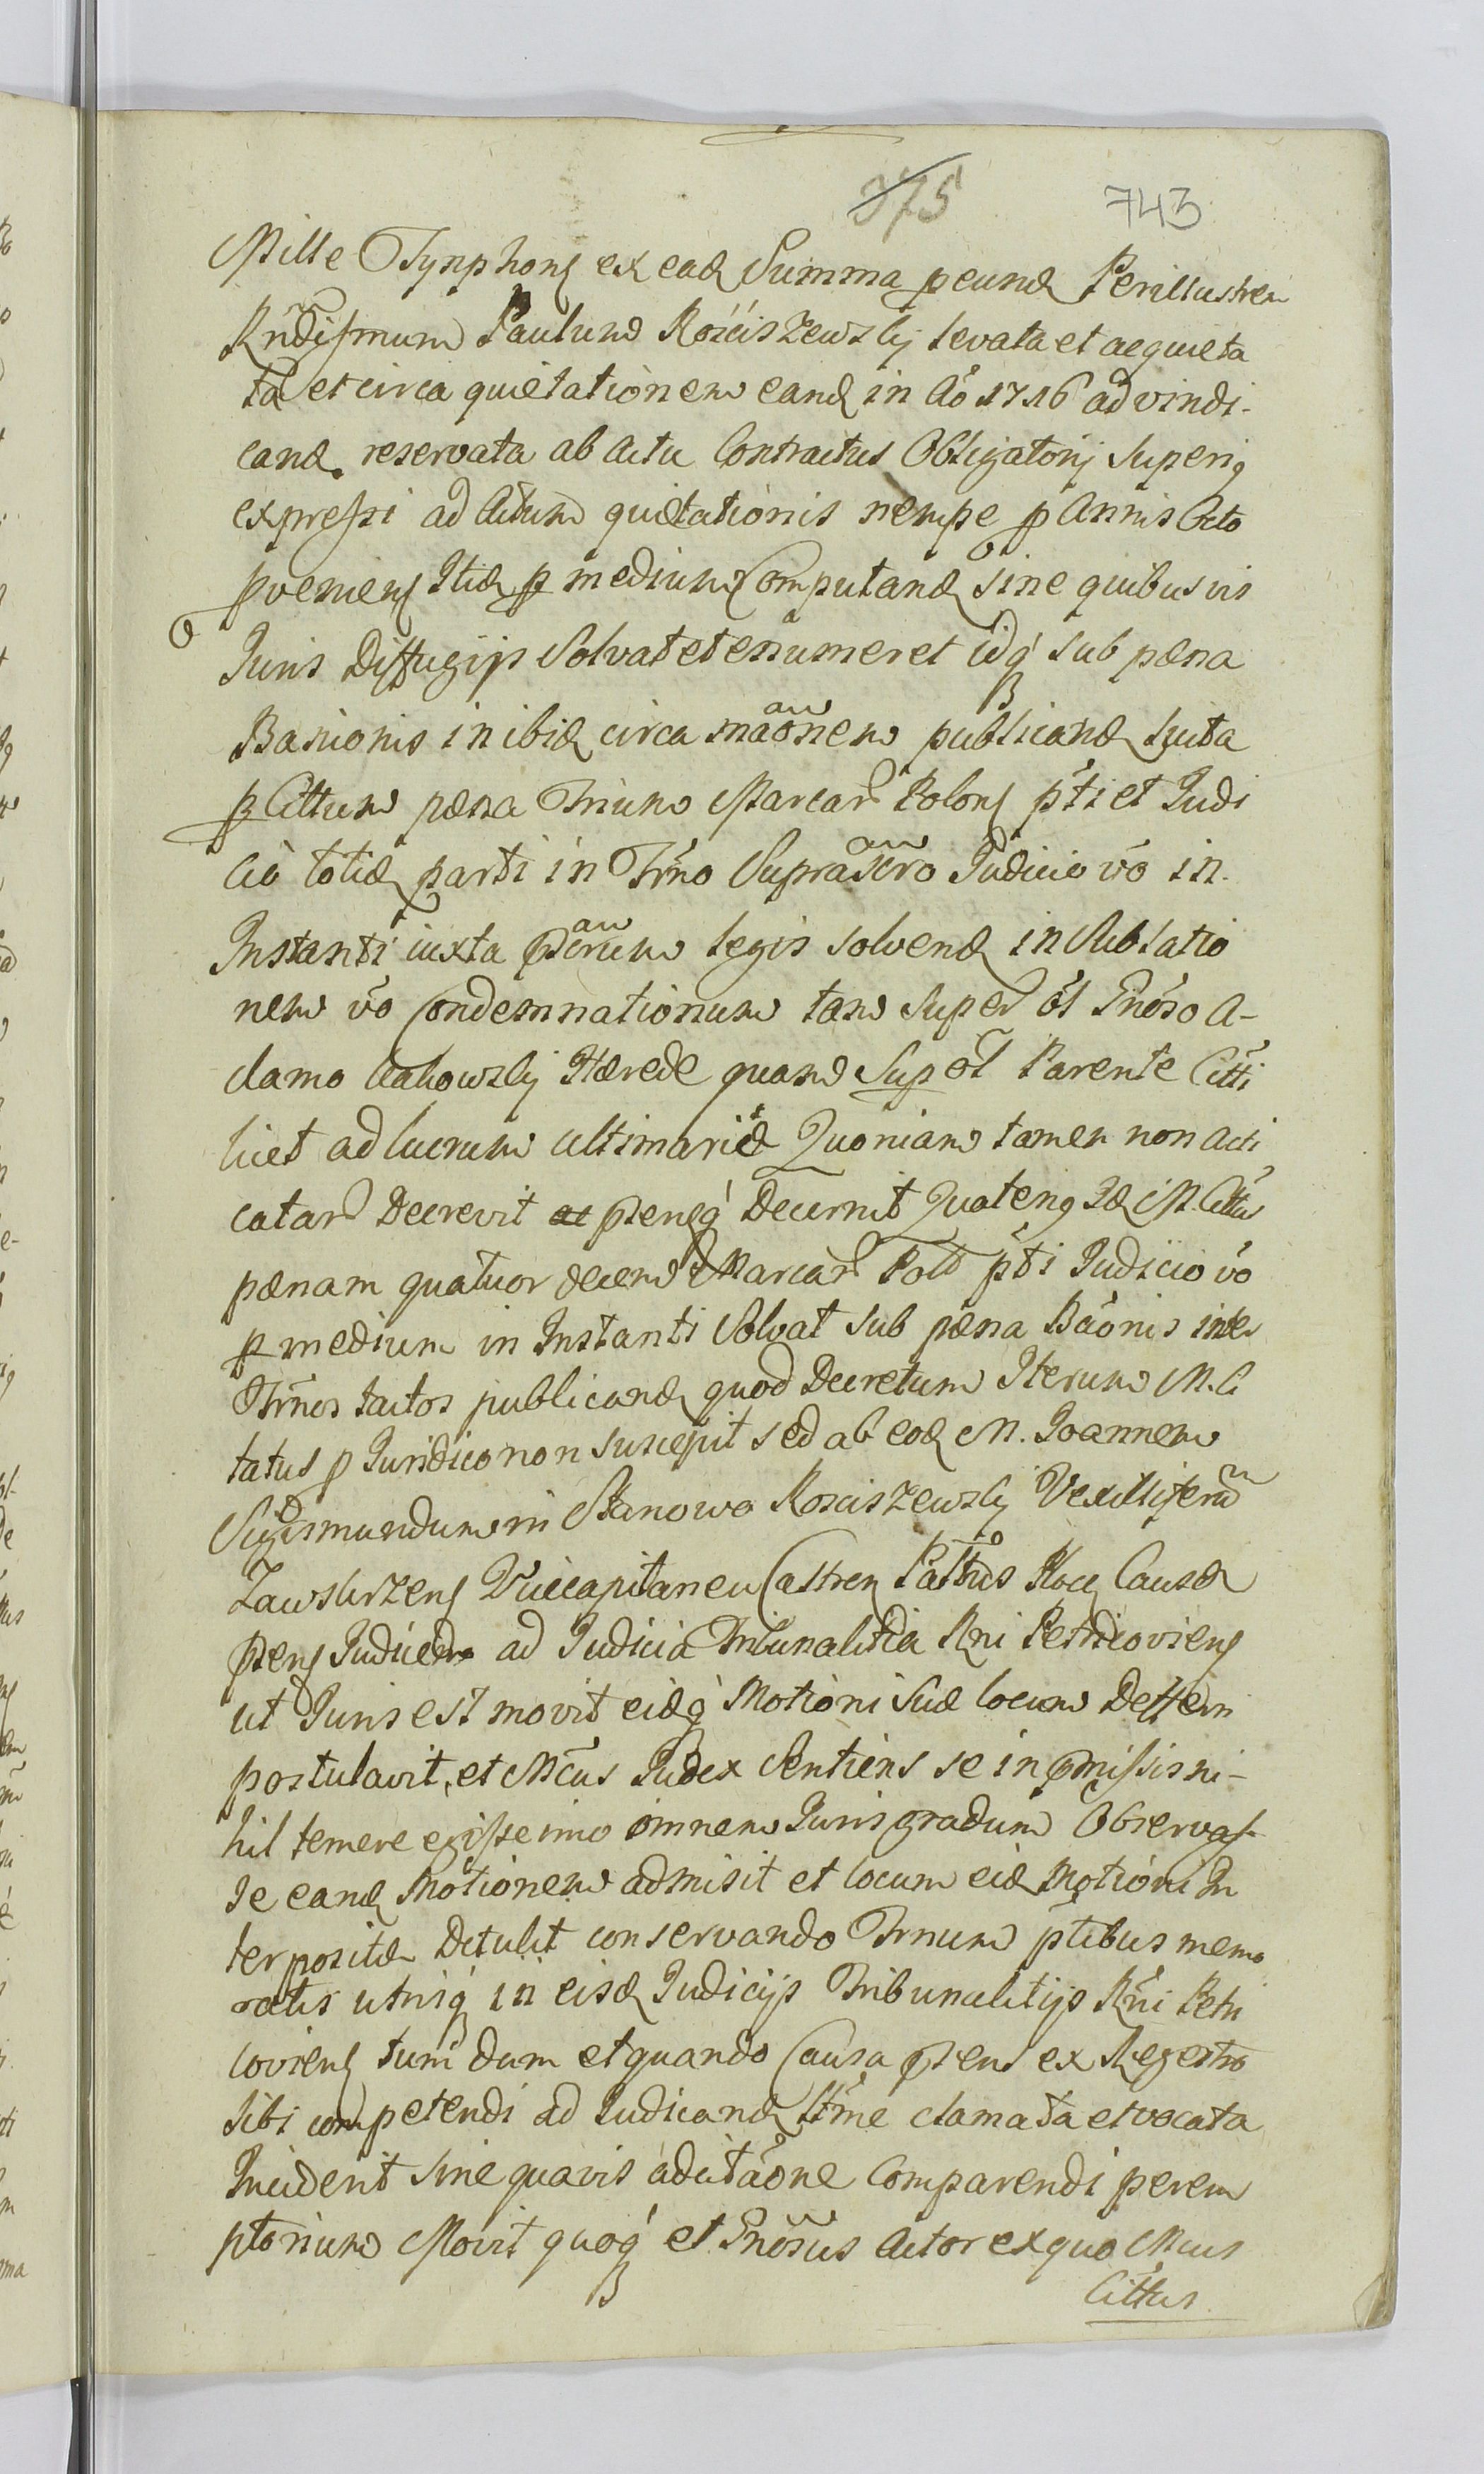 375 743
Mille Tynphons ex ead Summa p eund Perillustrem
Rndissmum Paulum Rościszewsky levata et aequieta
ta et circa quietationem eand in Ao 1716 ad vindi-
cand reservata ab actu Contractus Obligatorij Superiq
expressi ad Actum quietationis nempe p Annis Octo
proveniens Itid p medium Computand sine quibusvis
Juris Diffugijs Solvat et enumeret idq sub pæna
Bannionis inibid circa maonem publicand luita
p Cittum pæna Trium Marcar Polons pti et Judi
cio totid parti in Trno Suprascro Judicio vo in
Instanti iuxta pscrum legis solvend in Sublatio
nem vo Condemnationum tam Super ol Gnoso A-
damo Hærede quam Sup ol Parente Citti
licet ad lucrum ultimarie Quoniam tamen non adi
catar Decrevit ac psensq Decernit Quatenq Id M. Cittus
pænam quatuor decem Marcar Pol pti Judicio vo
p medium in Instanti Solvat sub pæna Baonis inter
Trnos tactos publicand quod Decretum Iterum M. Ci
tatus p Juridico non suscepit sed ab eod M. Joannem
Sigismundum in Skanowo Rosciszewsky Vexilliferum
Zawskrzens Vicecapitaneu Castren Plocen Causæ
psens Judicem ad Judicia Tribunalitia Rni Petricoviens
ut Juris est movit eidq Motioni Suæ locum Defferri
postulavit, et Mcus Judex Sentiens se in pmissis ni-
hil temere egisse imo omnem Juris gradum Observas-
se eand Motionem admisit et locum eid Motioni In
terpositæ Detulit conservando Trnum ptibus memo
ratis utrisq in eisd Judicijs Tribunalitijs Rni Petri
coviens tum dum et quando Causa psens ex Regestro
sibi competendi ad Judicand ltme clamata et vocata
Inciderit Sine quavis adcitaone Comparendi perem
ptorium Movit quoq et Gnosus Actor ex quo Mcus
Cittus